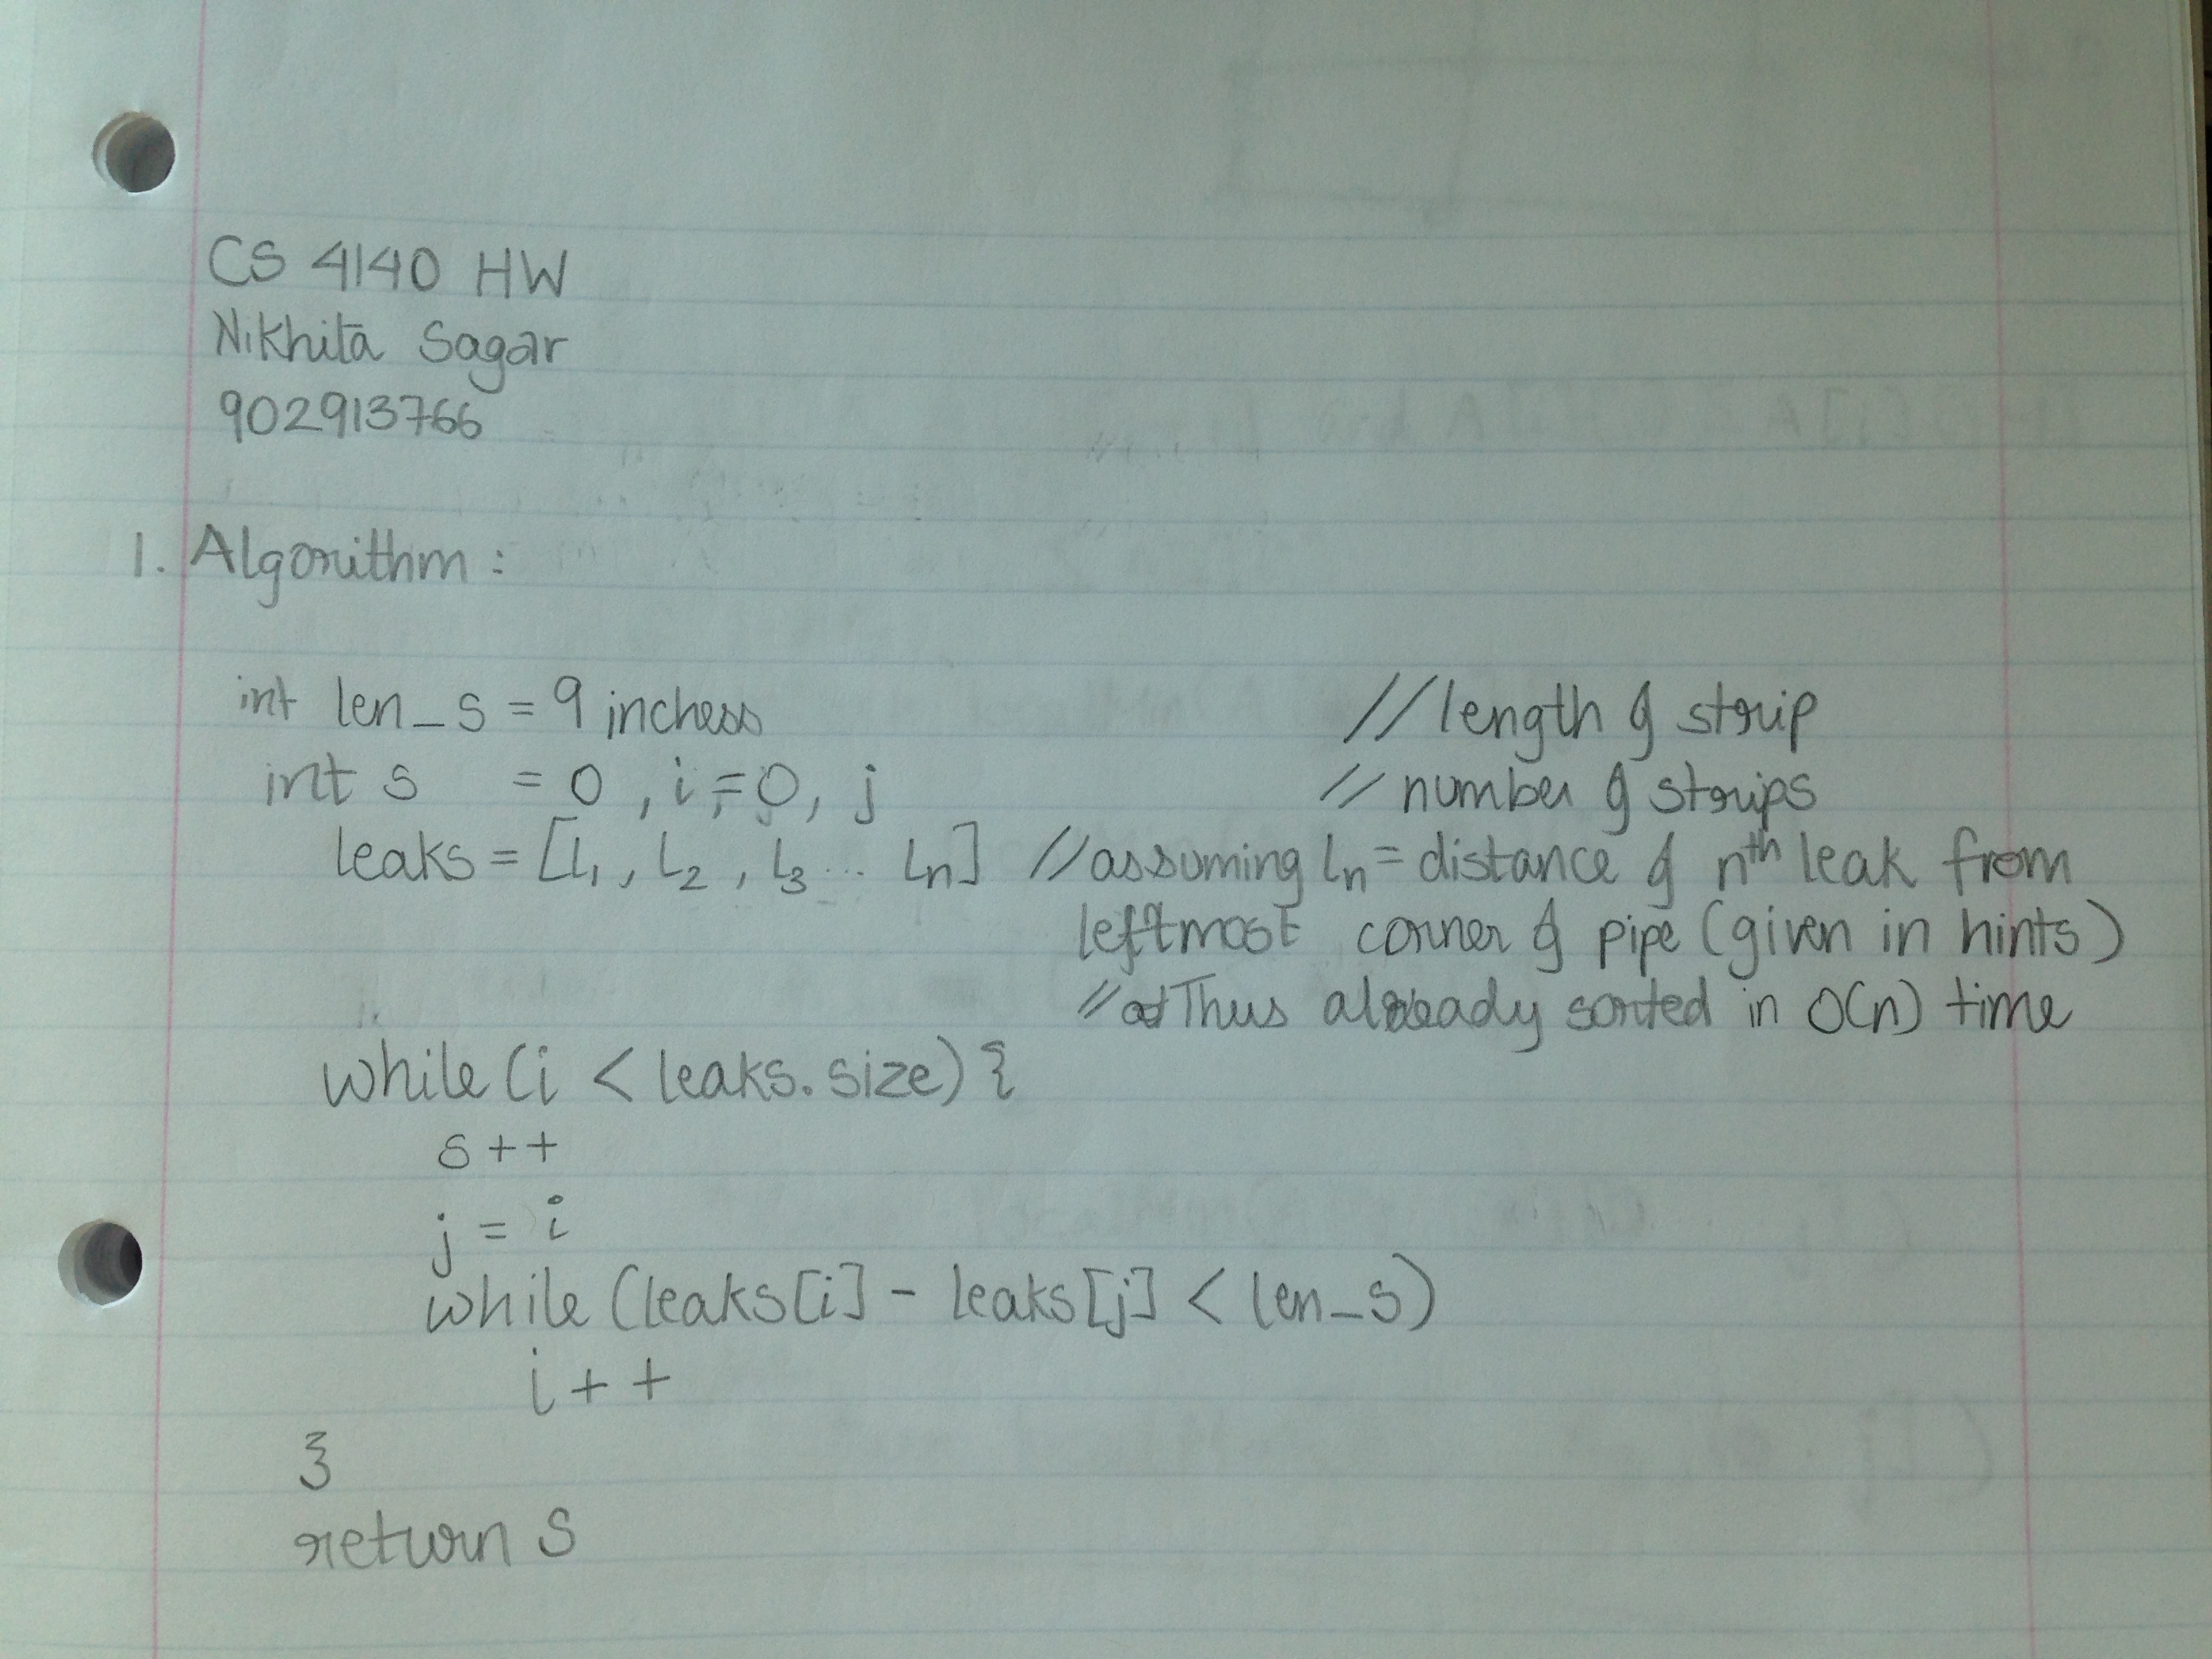 CS 4140 HW
Nikhita Sagar
902913766
1. Algorithm :
int len_s = 9 inches //length of strip
int s = 0, i=0, j // number of strips
leaks = [L1, L2, L3... Ln] //assuming Ln = distance of nth leak from
leftmost corner of pipe (given in hints)
// Thus already sorted in O(n) time
while (i < leaks.size) {
s++
j = i
while (leaks[i] - leaks[j] < len_s)
i++
}
return s